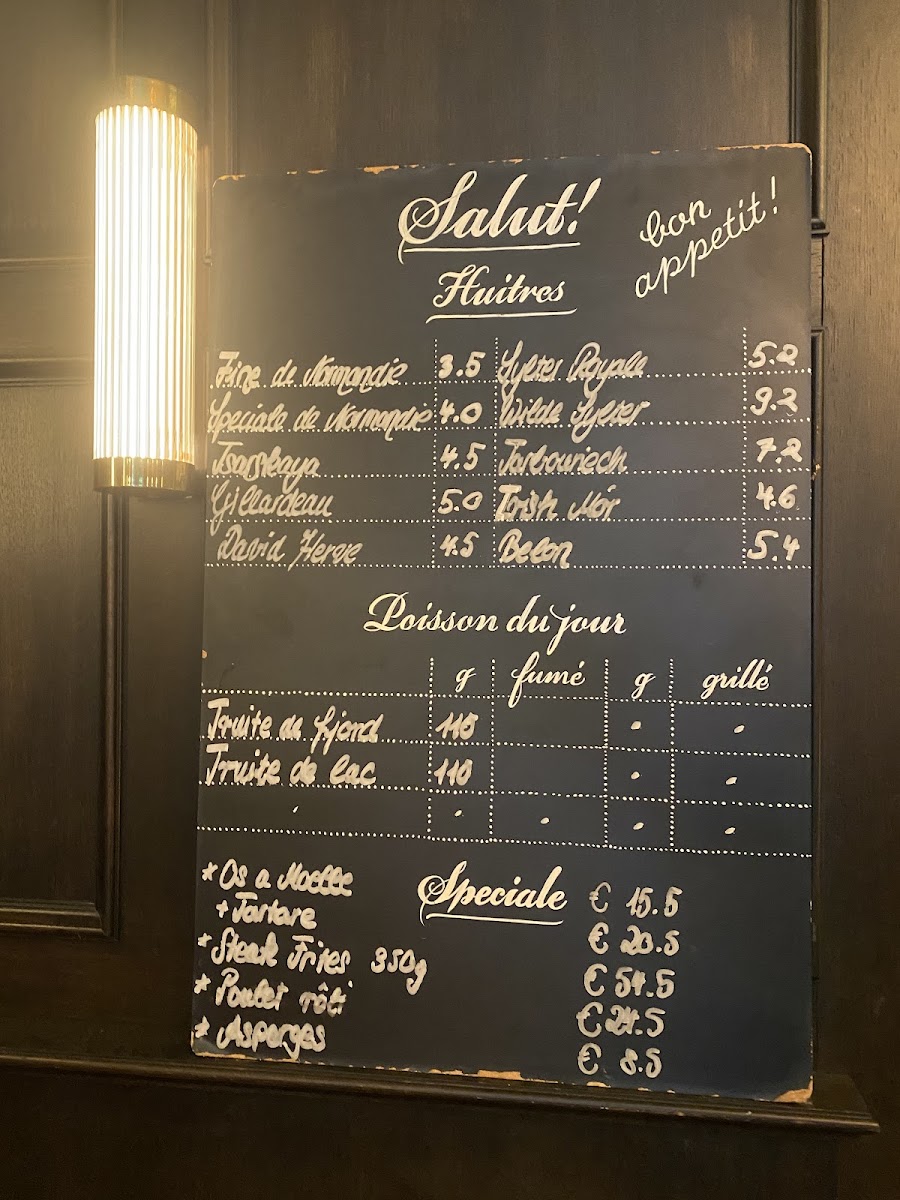 Salut!
bon appetit!
Huitres
Fine de Normandie 3.5 Sylter Royale 5.2
Speciale de Normandie 4.0 Wilde Sylter 9.2
Tsarskaya 4.5 Tarbouriech 7.2
Gillardeau 5.0 Irish Mór 4.6
David Herve 4.5 Belon 5.4
Poisson du jour
g fumé g grillé
Truite du fjord 110
Truite de lac 110
Speciale
* Os a Moelle € 15.5
+ Tartare € 20.5
* Steak Frites 350g € 54.5
* Poulet rôti € 24.5
* Asperges € 8.5